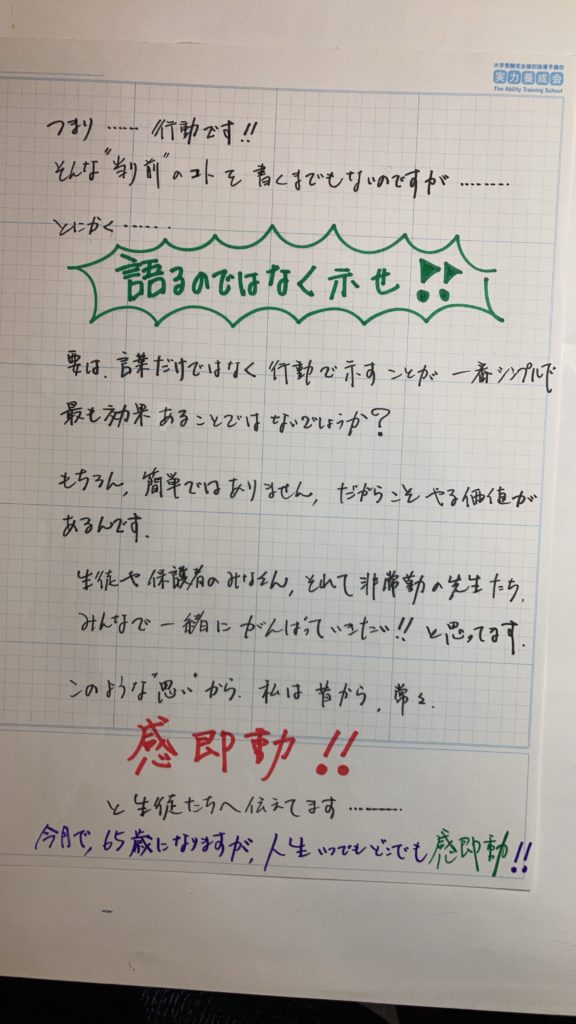 大学受験完全個別指導予備校
実力養成会
The Ability Training School
つまり …… 行動です!!
そんな"当り前"のコトを 書くまでもないのですが ………
とにかく ……
語るのではなく示せ!!
要は、言葉だけではなく 行動で示すことが 一番シンプルで
最も効果あることではないでしょうか?
もちろん、簡単ではありません、だからこそやる価値が
あるんです.
生徒や保護者のみなさん、そして非常勤の先生たち、
みんなで一緒にがんばっていきたい!! と思ってます.
このような"思い"から、私は昔から、常々、
感即動!!
と生徒たちへ伝えてます ………
今月で、65歳になりますが、人生いつでもどこでも感即動!!